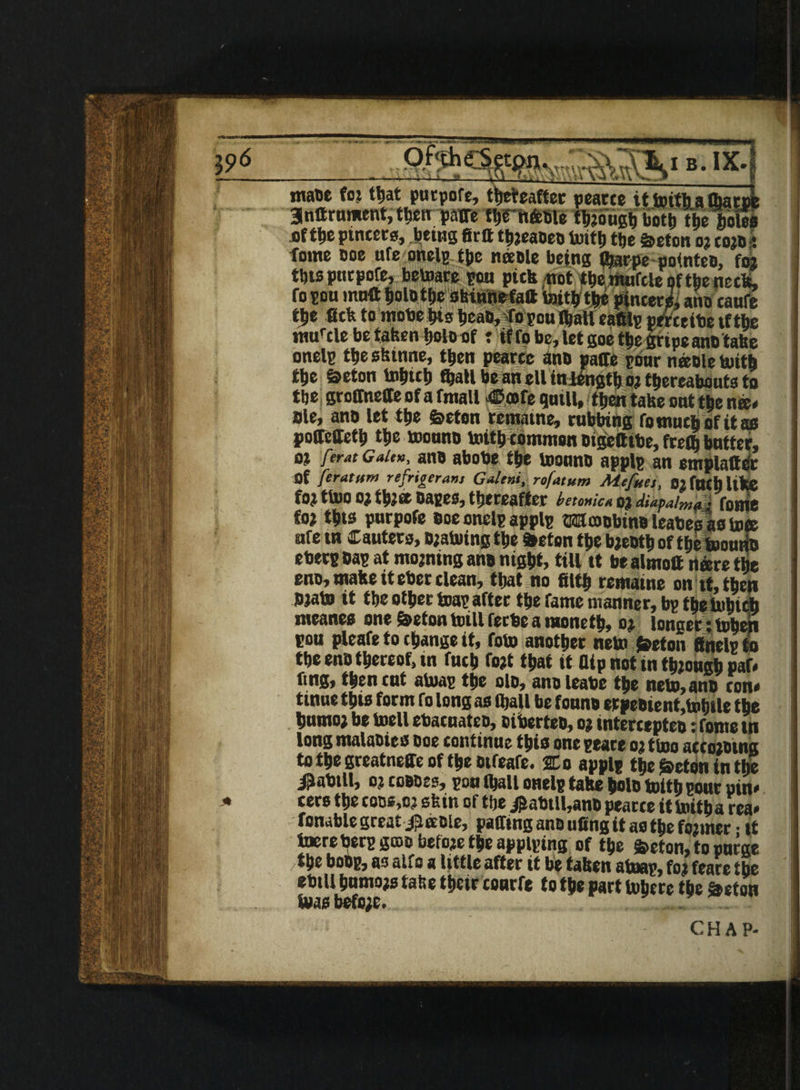 396 Of the Seton. LIB. IX.
made for that purpose, thereafter pearce it with a sharpe
Instrument, then passe the néedle through both the holes
of the pincers, being first threaded with the Seton or cord :
some doe use onely the néedle being sharpe pointed, for
this purpose, beware you pick not the muscle of the neck,
so you must hold the skinne fast with the pincers, and cause
the sick to move his head, so you shall easily perceive if the
muscle be taken hold of : if so be, let goe the gripe and take
onely the skinne, then pearce and passe your néedle with
the Seton which shall be an ell in length or thereabouts to
the grossnesse of a small Goose quill, then take out the née-
dle, and let the Seton remaine, rubbing so much of it as
possesseth the wound with common digestive, fresh butter,
or ferat Galen, and above the wound apply an emplaster
of feratum refrigerans Galeni, rosatum Mesues, or such like
for two or thrée dayes, thereafter betonica or diapalma; some
for this purpose doe onely apply Woodbind leaves as wée
use in Cauters, drawing the Seton the bredth of the wound
every day at morning and night, till it be almost néere the
end, make it ever clean, that no filth remaine on it, then
draw it the other way after the same manner, by the which
meanes one Seton will serve a moneth, or longer: when
you please to change it, sow another new Seton finely to
the end thereof, in such sort that it slip not in through pas-
sing, then cut away the old, and leave the new, and con-
tinue this form so long as shall be found expedient, while the
humor be well evacuated, diverted, or intercepted : some in
long maladies doe continue this one yeare or two according
to the greatnesse of the disease. To apply the Seton in the
Navill, or coddes, you shall onely take hold with your pin-
cers the cods, or skin of the Navill, and pearce it with a rea-
sonable great Néedle, passing and using it as the former; it
were very good before the applying of the Seton, to purge
the body, as also a little after it be taken away, for feare the
evill humors take their course to the part where the Seton
was before.
CHAP-